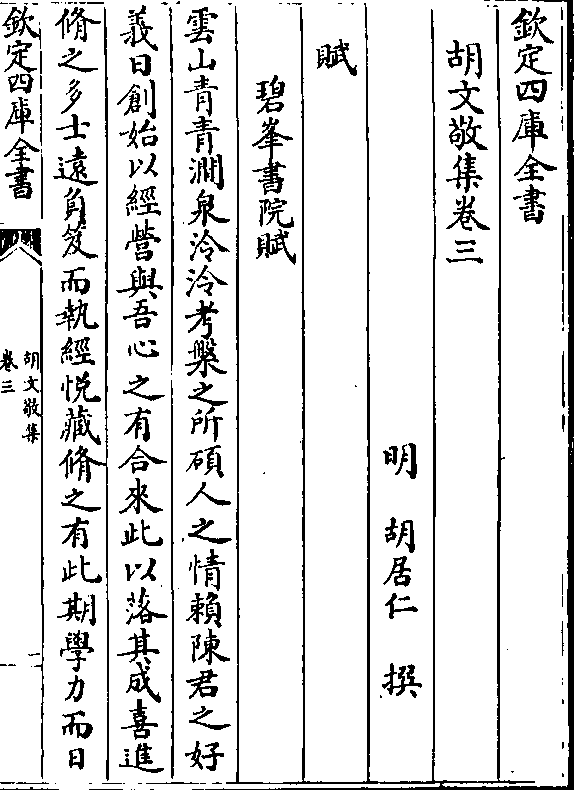 欽定四庫全書
胡文敬集卷三
明　胡居仁　撰
賦
碧峯書院賦
雲山青青澗泉泠泠考槃之所碩人之情賴陳君之好
義日創始以經營與吾心之有合來此以落其成喜進
脩之多士遠負笈而執經悅藏脩之有此期學力而日
欽定四庫全書
胡文敬集
卷三
一